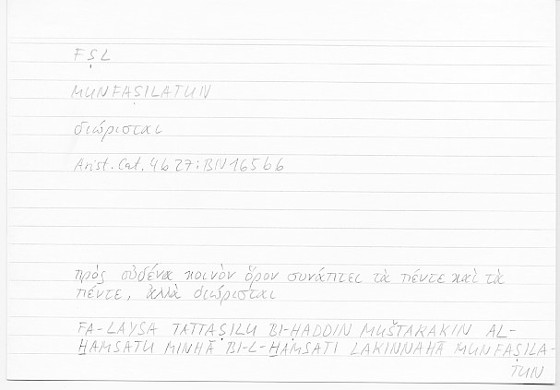 FṢL
MUNFAṢILATUN
διώρισται
Arist. Cat. 4b 27: BN 165b6
πρὸς οὐδένα κοινὸν ὅρον συνάπτει τὰ πέντε καὶ τὰ
πέντε, ἀλλὰ διώρισται
FA-LAYSA TATTAṢILU BI-ḤADDIN MUŠTARAKIN AL-
ḪAMSATU MINHĀ BI-L-ḪAMSATI LAKINNAHĀ MUNFAṢILA-
TUN